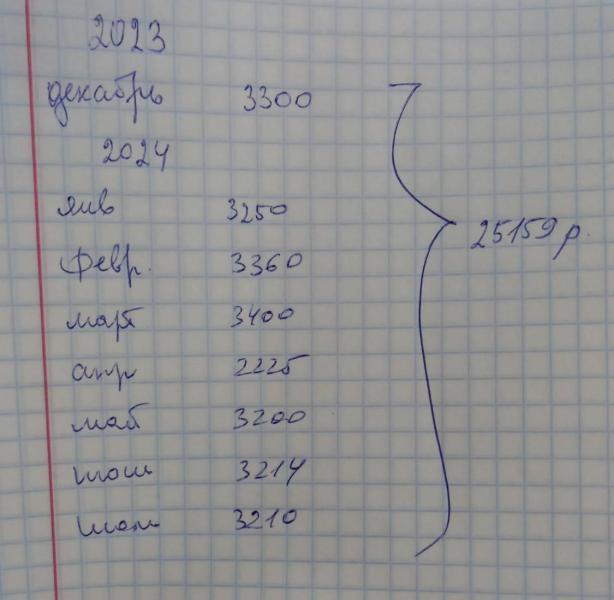 2023
декабрь 3300
2024
янв 3250
25159 р.
февр. 3360
март 3400
апр 2225
май 3200
июнь 3214
июль 3210